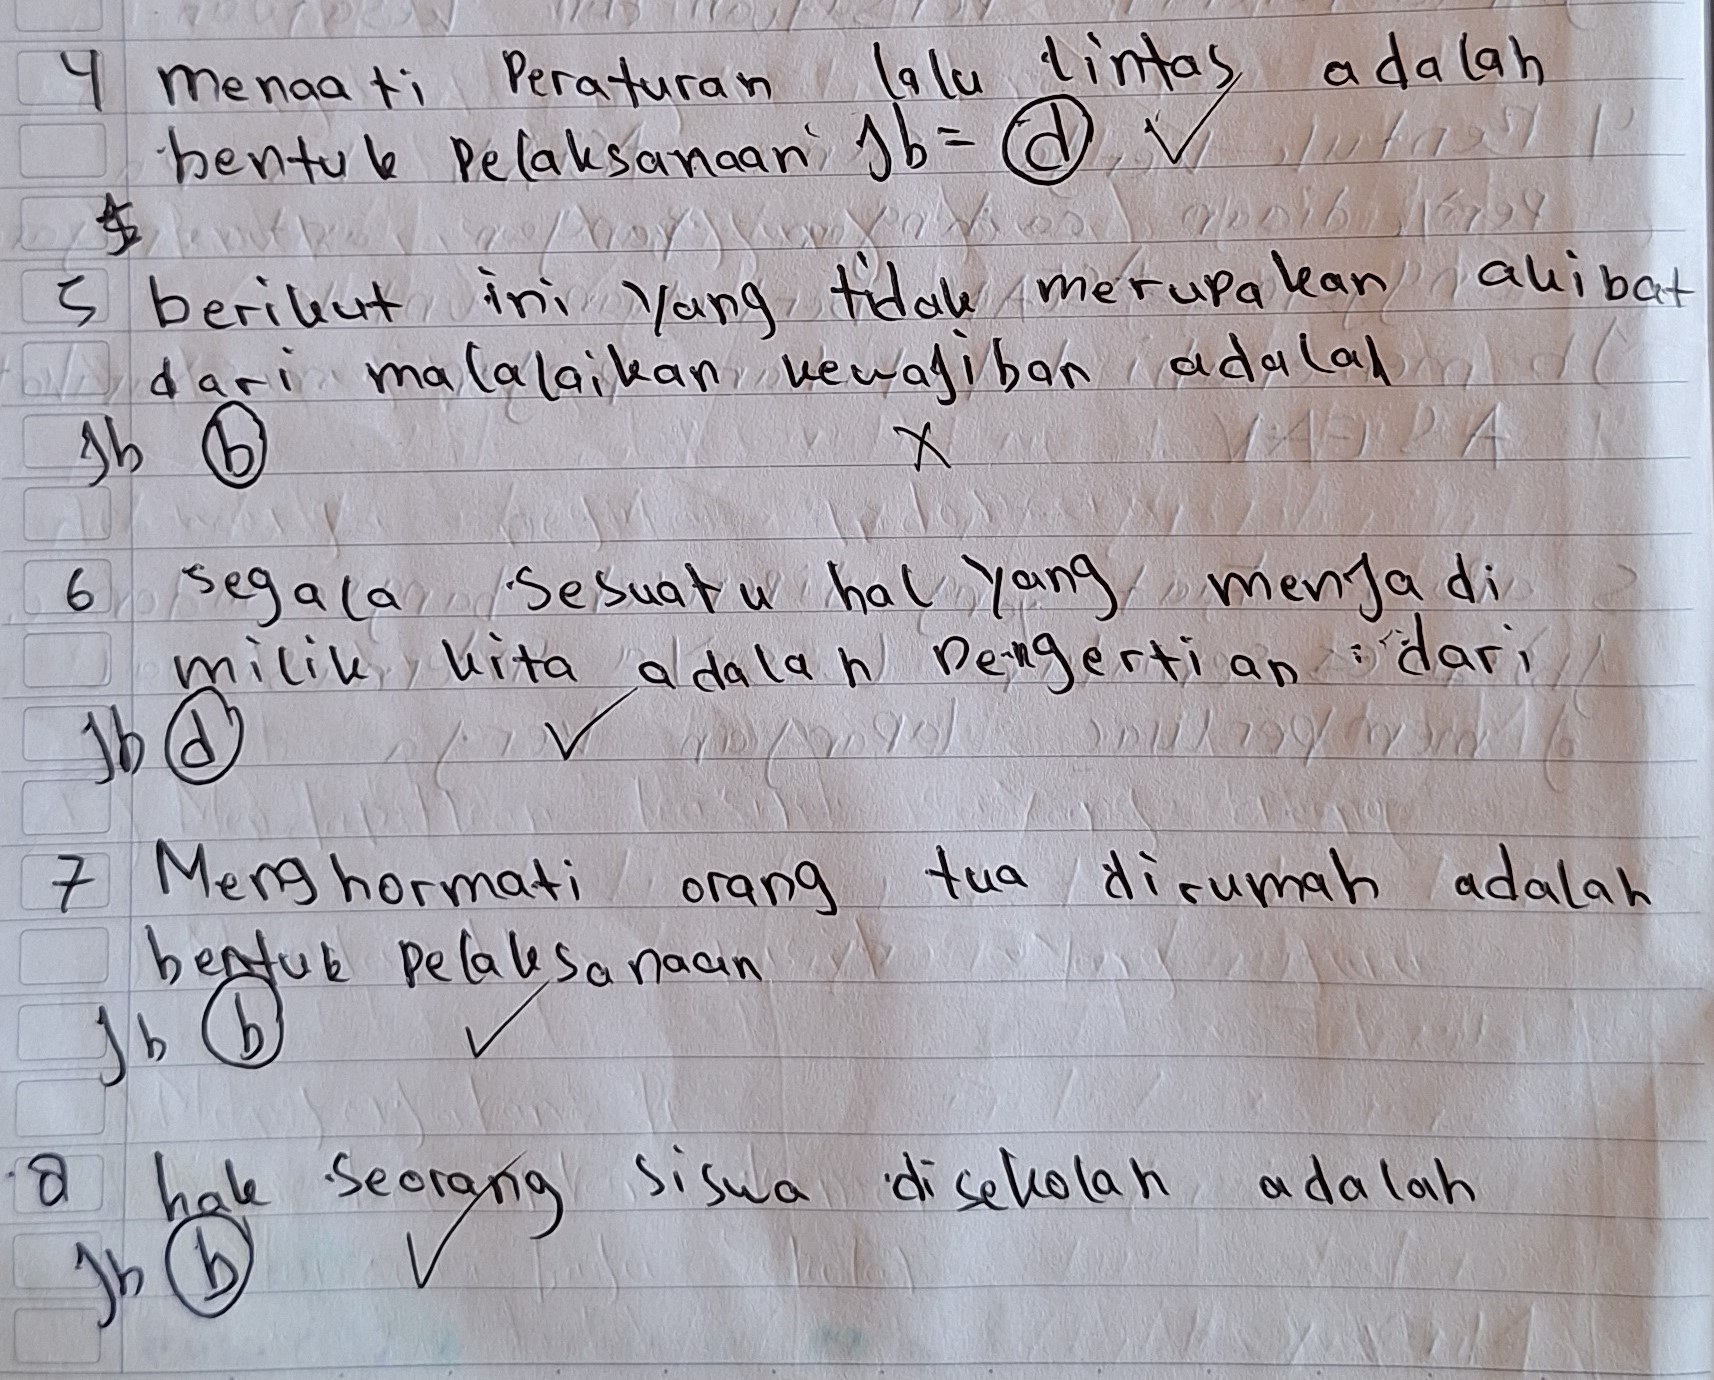 4 menaati Peraturan lalu lintas adalah
bentuk Pelaksanaan Jb = d ✓
5 berikut ini yang tidak merupakan akibat
dari malalaikan kewajiban adalah
Jb b X
6 segala Sesuatu hal yang menjadi
milik kita adalah Pengertian : dari
Jb d ✓
7 Menghormati orang tua dirumah adalah
bentuk Pelaksanaan
Jb b ✓
8 hak Seorang Siswa disekolah adalah
Jb b ✓